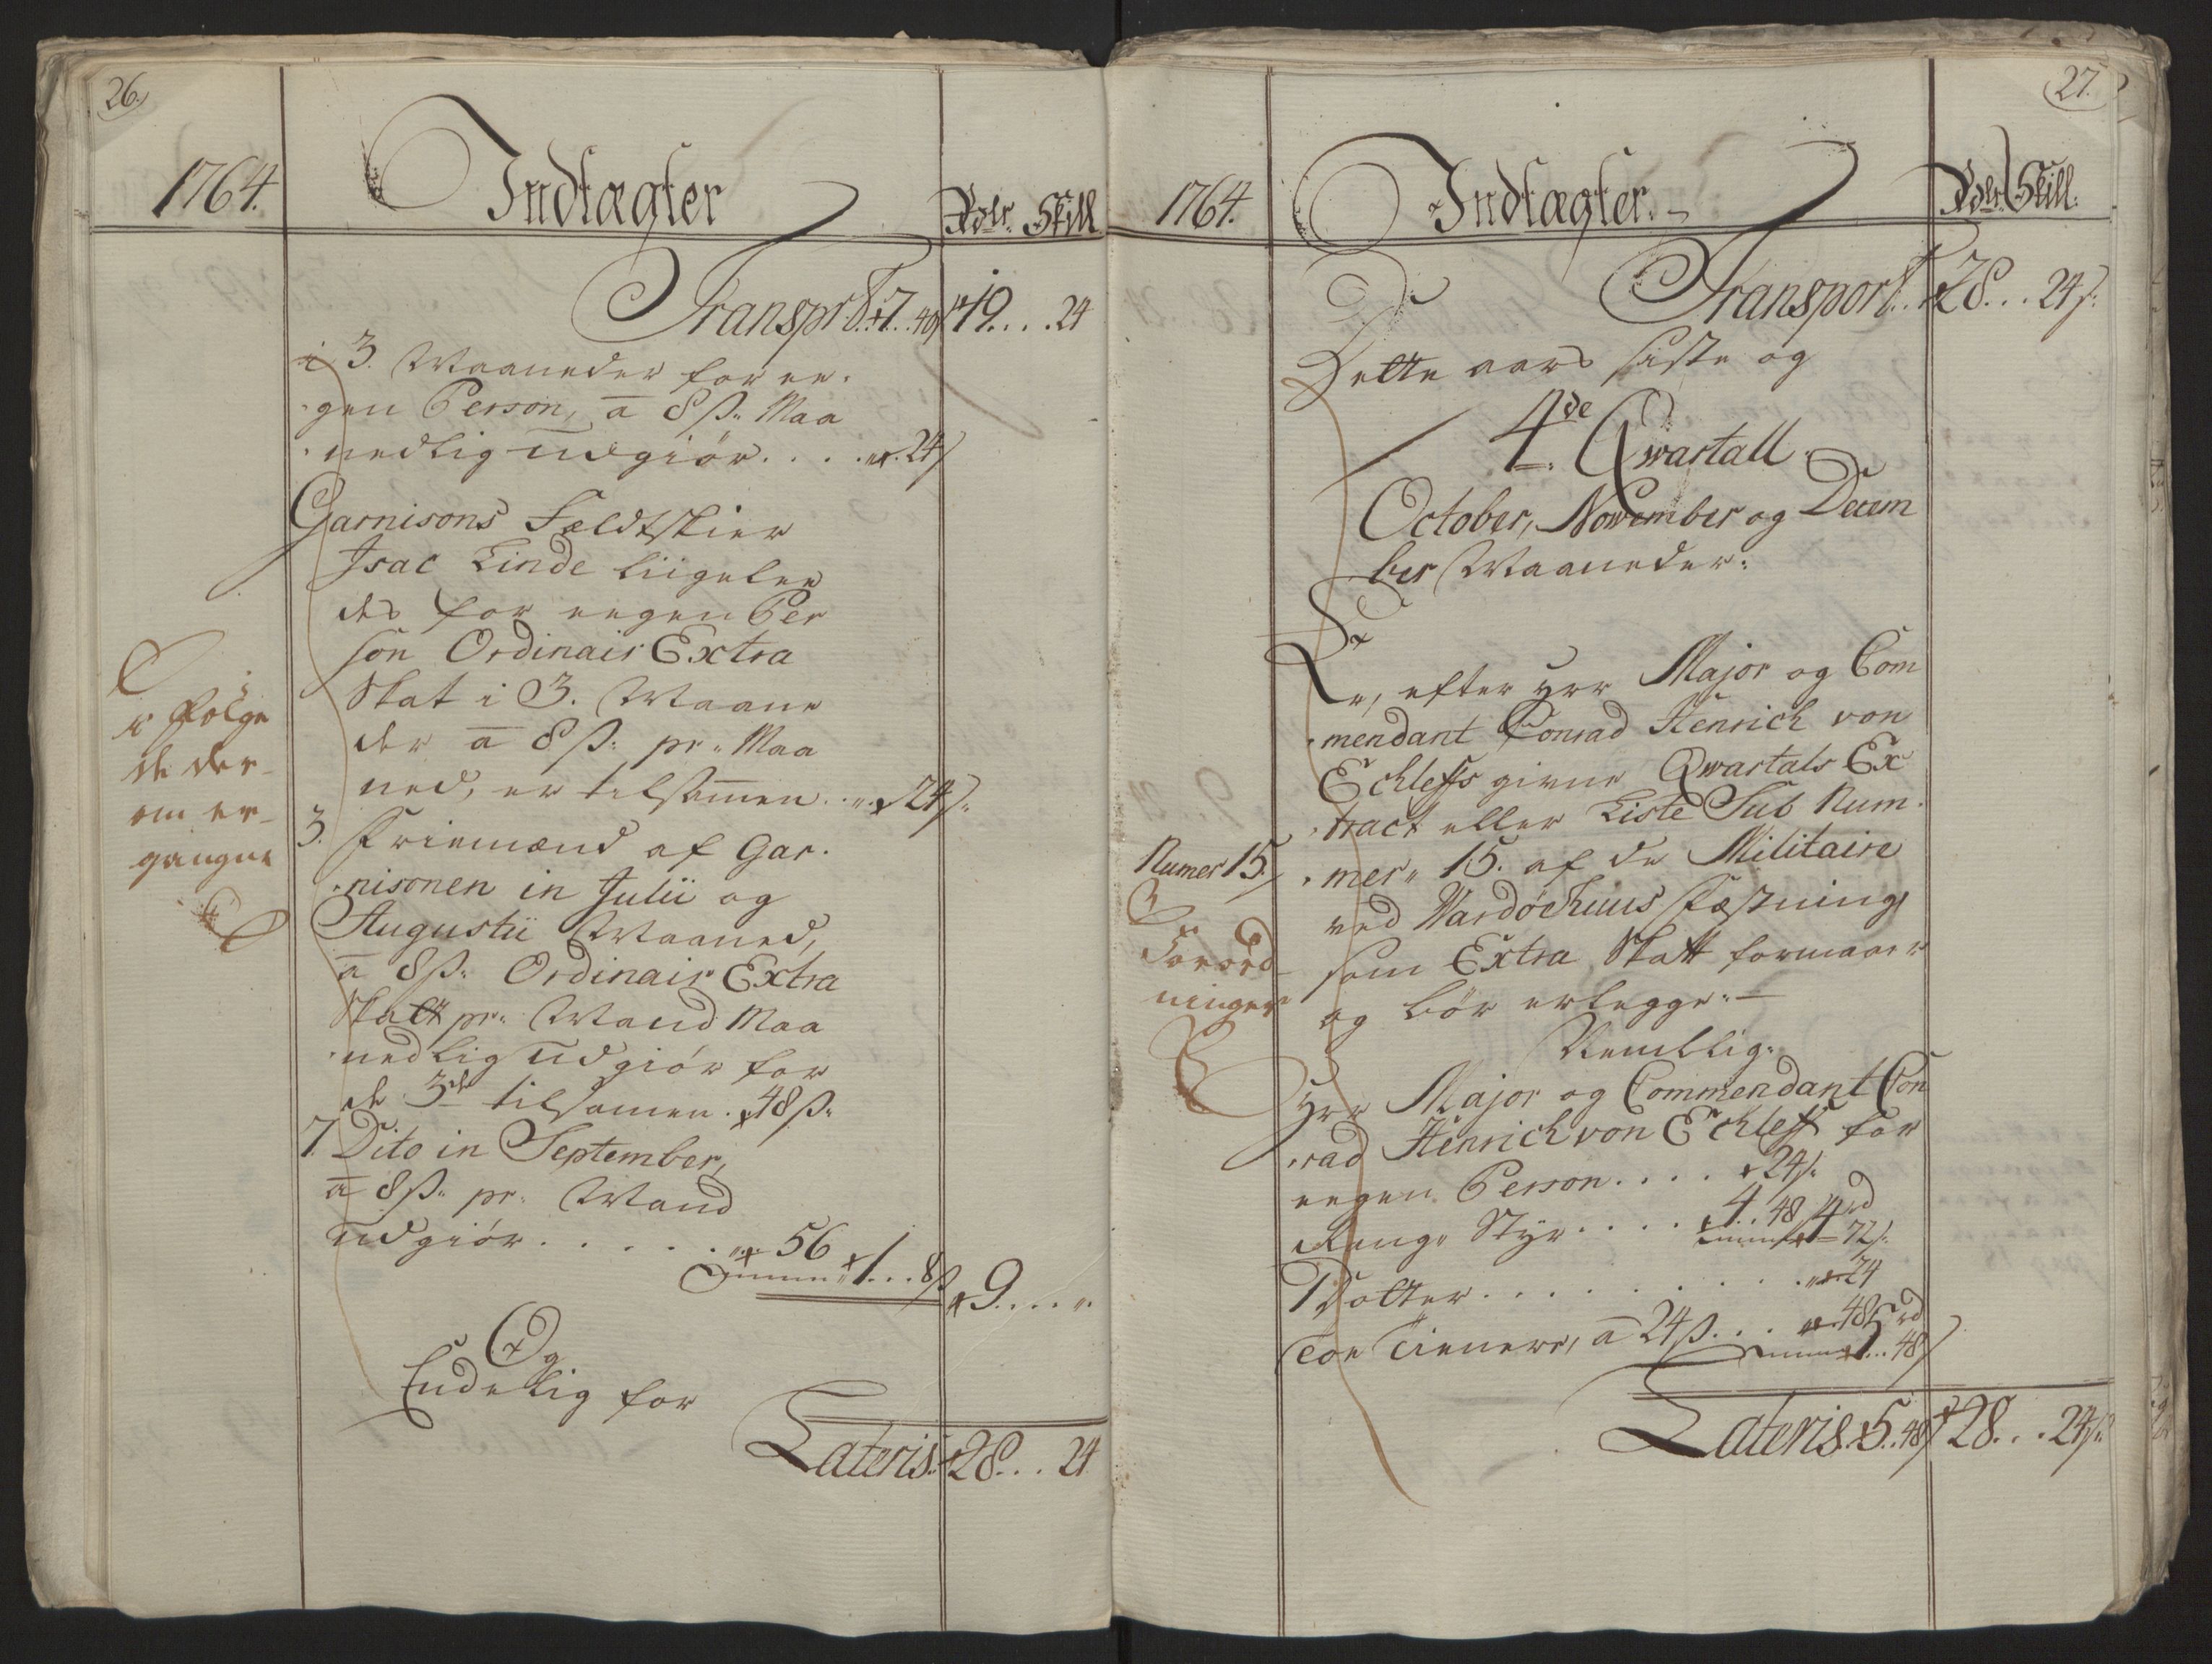 26.
1764.
Indtægter
Rdlr. Skill
Transpr 7..40 19....24
i 3. Maaneder for ee.
gen Person, a 8 ß. Maa
nedlig udgiør.....24
Garnisons Feldtskier
Isac Linde liigelee
des for eegen Per
son Ordinair Extra
Skat i 3. Maane
der a 8 ß: pr. Maa
ned, er tilsamen...24 ß:
3. Friemænd af Gar.
nisonen in Julii og
Augustii Maaned,
a 8 ß: Ordinair Extra
Skatt pr: Mand Maa
nedlig udgiør for
de 3de tilsamen. 48 ß:
7. Dito in September,
a 8 ß: pr: Mand
udgiør......56
1...8 ß 9....
Følge
de der-
om er-
gangne
Og
Endelig for
Lateris. 28...24
27.
1764.
Indtægter.
Rdlr. Skill.
Transport. 28...24 ß:
Dette aars siste og
4de Qwartall
October, November og Decem
ber Maaneder:
efter Hrr Major og Com
mendant Conrad Henrich von
Echleffs givne Qwartals Ex
tract eller Liste Sub Num
mer 15. af de Militaire
ved Wardøehuus Fæstning
som Extra Skatt formaaer
og bør erlegge:
Nemblig:
Numer 15.
Forord-
ninger
Hrr Major og Commendant Con
rad Henrich von Echleff for
eegen Person.... 24 ß:
Rangs Styr.... 4..48 4 rd
72 ß:
1 Dotter.......24
Toe Tienere, a 24 ß...48 5 rd
48
Lateris. 5..48 28...24 ß: